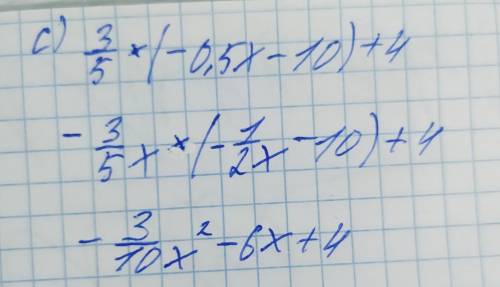 c) 3/5 * (-0,5x - 10) + 4
- 3/5 x * (- 1/2x - 10) + 4
- 3/10 x² - 6x + 4